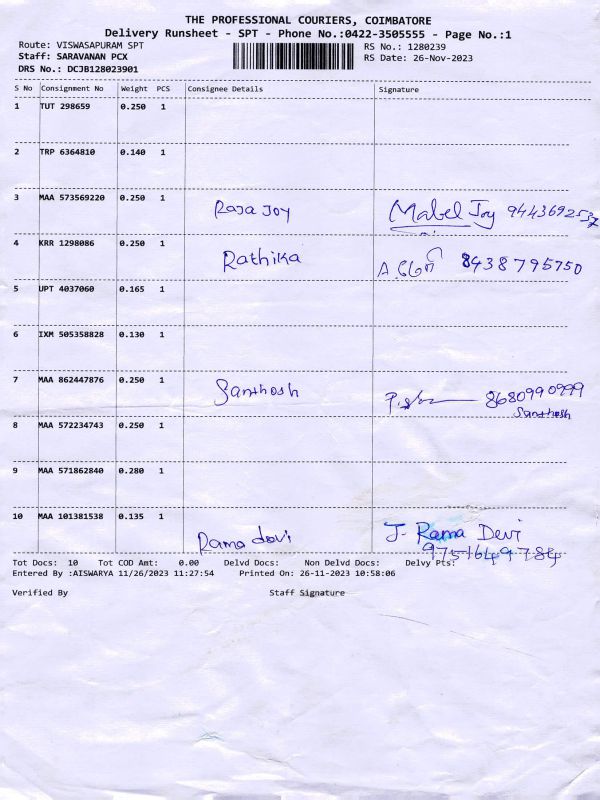 THE PROFESSIONAL COURIERS, COIMBATORE
Delivery Runsheet - SPT - Phone No.:0422-3505555 - Page No.:1
Route: VISWASAPURAM SPT RS No.: 1280239
Staff: SARAVANAN PCX RS Date: 26-Nov-2023
DRS No.: DCJB128023901
S No Consignment No Weight PCS Consignee Details Signature
1 TUT 298659 0.250 1
2 TRP 6364810 0.140 1
3 MAA 573569220 0.250 1 Raja Joy Mabel Joy 9443692537
4 KRR 1298086 0.250 1 Rathika 8438795750
5 UPT 4037060 0.165 1
6 IXM 505358828 0.130 1
7 MAA 862447876 0.250 1 Santhosh 8680990999
Santhosh
8 MAA 572234743 0.250 1
9 MAA 571862840 0.280 1
10 MAA 101381538 0.135 1 Rama devi J. Rama Devi
9751649784
Tot Docs: 10 Tot COD Amt: 0.00 Delvd Docs: Non Delvd Docs: Delvy Pts:
Entered By :AISWARYA 11/26/2023 11:27:54 Printed On: 26-11-2023 10:58:06
Verified By Staff Signature